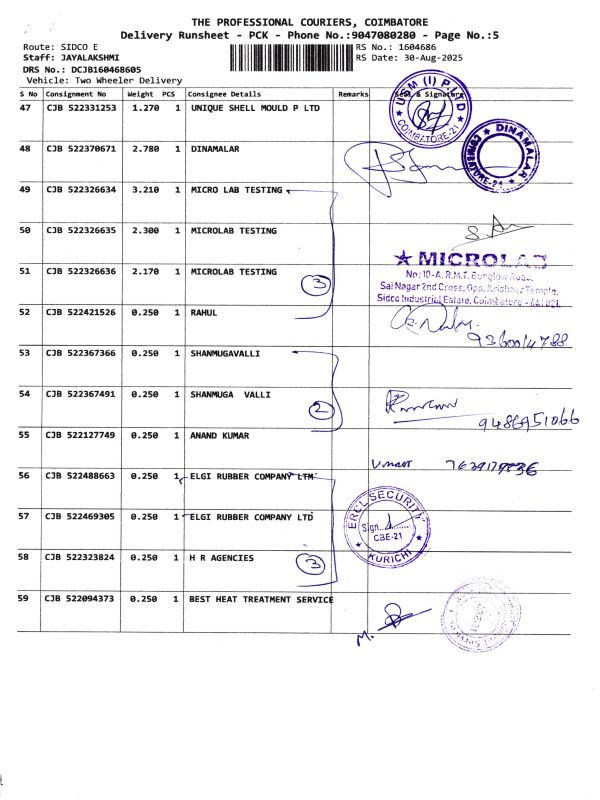 THE PROFESSIONAL COURIERS, COIMBATORE
Delivery Runsheet - PCK - Phone No.:9047080280 - Page No.:5
Route: SIDCO E
Staff: JAYALAKSHMI
DRS No.: DCJB160468605
Vehicle: Two Wheeler Delivery
RS No.: 1604686
RS Date: 30-Aug-2025
S No Consignment No Weight PCS Consignee Details Remarks Seal & Signature
47 CJB 522331253 1.270 1 UNIQUE SHELL MOULD P LTD
USM (I) P. LTD
COIMBATORE-21
48 CJB 522370671 2.780 1 DINAMALAR
DINAMALAR
49 CJB 522326634 3.210 1 MICRO LAB TESTING
50 CJB 522326635 2.300 1 MICROLAB TESTING
51 CJB 522326636 2.170 1 MICROLAB TESTING
3
★ MICROLAB
No: 10-A, R.M.T. Bunglow Road,
Sai Nagar 2nd Cross, Opp. Krishner Temple,
Sidco Industrial Estate, Coimbatore - 641 021.
52 CJB 522421526 0.250 1 RAHUL
53 CJB 522367366 0.250 1 SHANMUGAVALLI
54 CJB 522367491 0.250 1 SHANMUGA VALLI
2
55 CJB 522127749 0.250 1 ANAND KUMAR
56 CJB 522488663 0.250 1 ELGI RUBBER COMPANY LTD
57 CJB 522469305 0.250 1 ELGI RUBBER COMPANY LTD
ERCL SECURITY
Sign.
CBE-21
KURICHI
58 CJB 522323824 0.250 1 H R AGENCIES
3
59 CJB 522094373 0.250 1 BEST HEAT TREATMENT SERVICE
M.